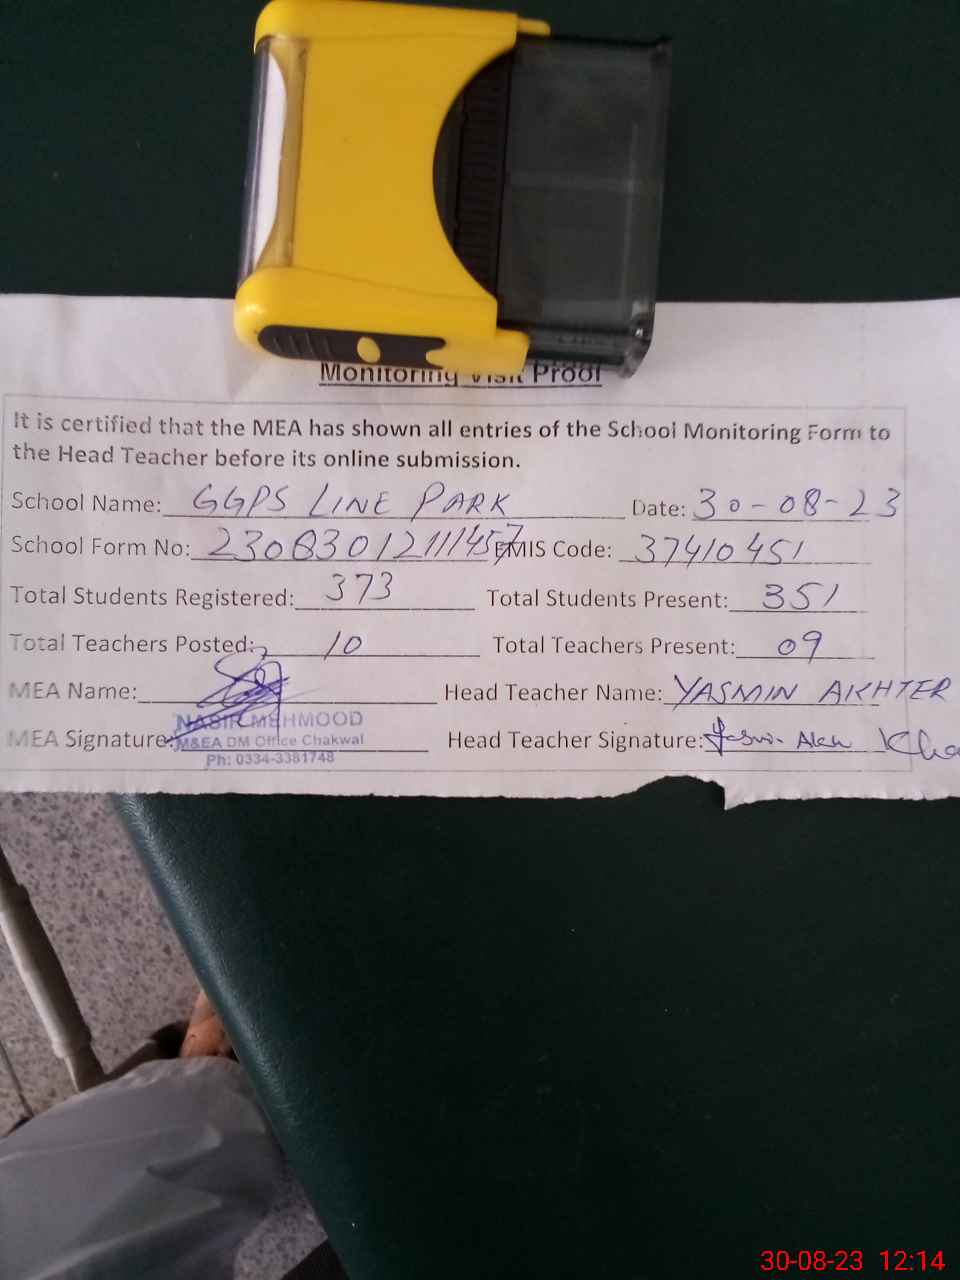 Monitoring Visit Proof
It is certified that the MEA has shown all entries of the School Monitoring Form to
the Head Teacher before its online submission.
School Name: GGPS LINE PARK Date: 30-08-23
School Form No: 23083012111457 EMIS Code: 37410451
Total Students Registered: 373 Total Students Present: 351
Total Teachers Posted: 10 Total Teachers Present: 09
MEA Name: Head Teacher Name: YASMIN AKHTER
NASIR MEHMOOD
MEA Signature: M&EA DM Office Chakwal Head Teacher Signature:
Ph: 0334-3381748
30-08-23 12:14